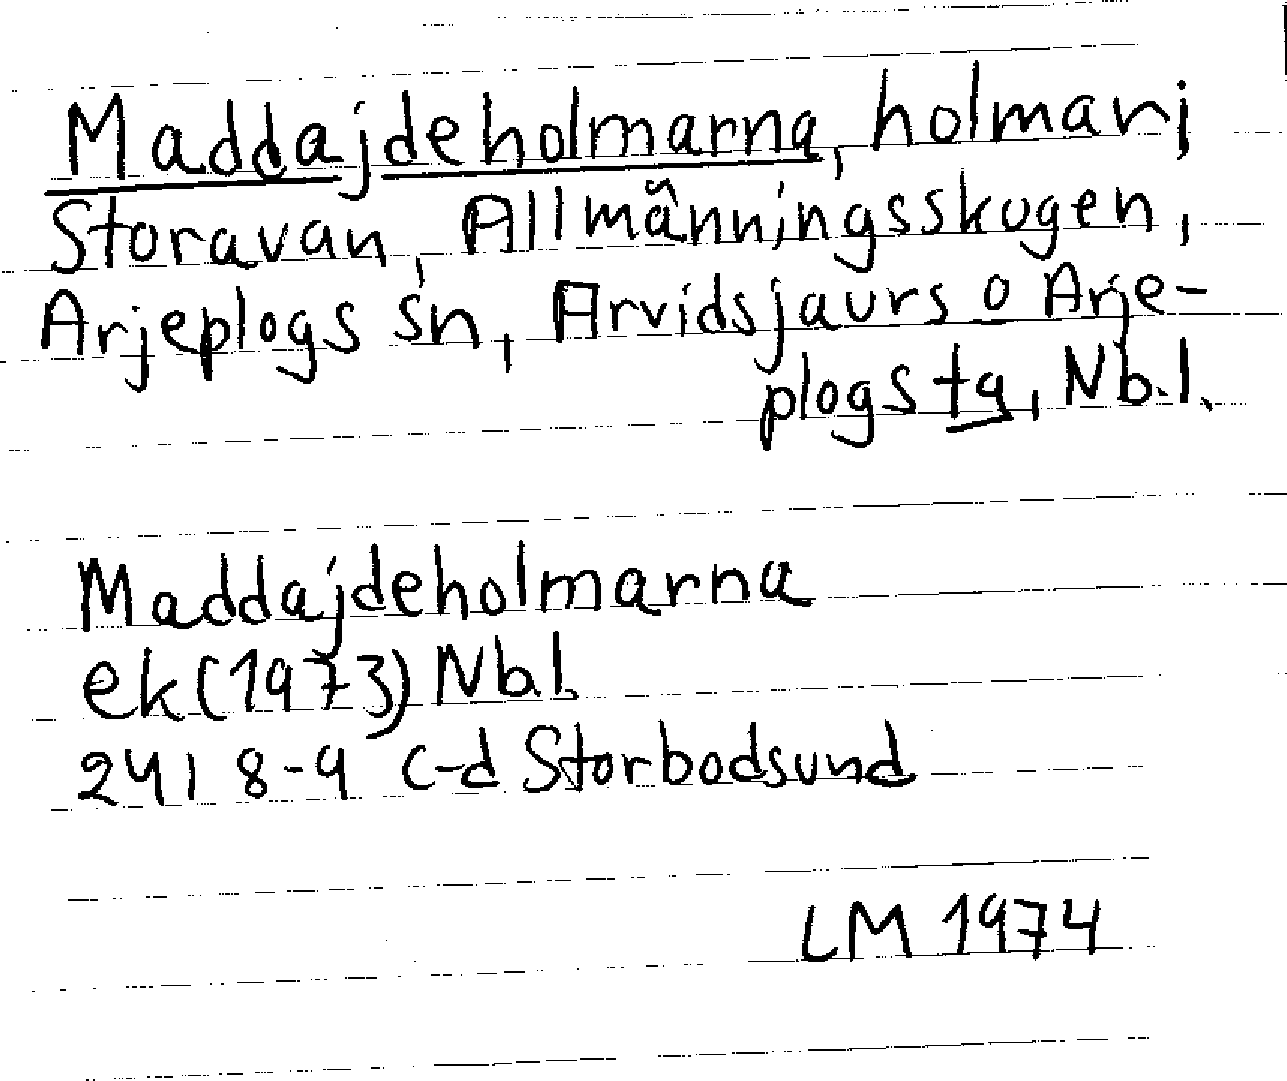 Maddajdeholmarna, holmar i
Storavan, Allmänningsskogen,
Arjeplogs sn, Arvidsjaurs o Arje-
plogs tg, Nb.l.
Maddajdeholmarna
ek (1973) Nb.l.
24 I 8-9 c-d Storbodsund
LM 1974